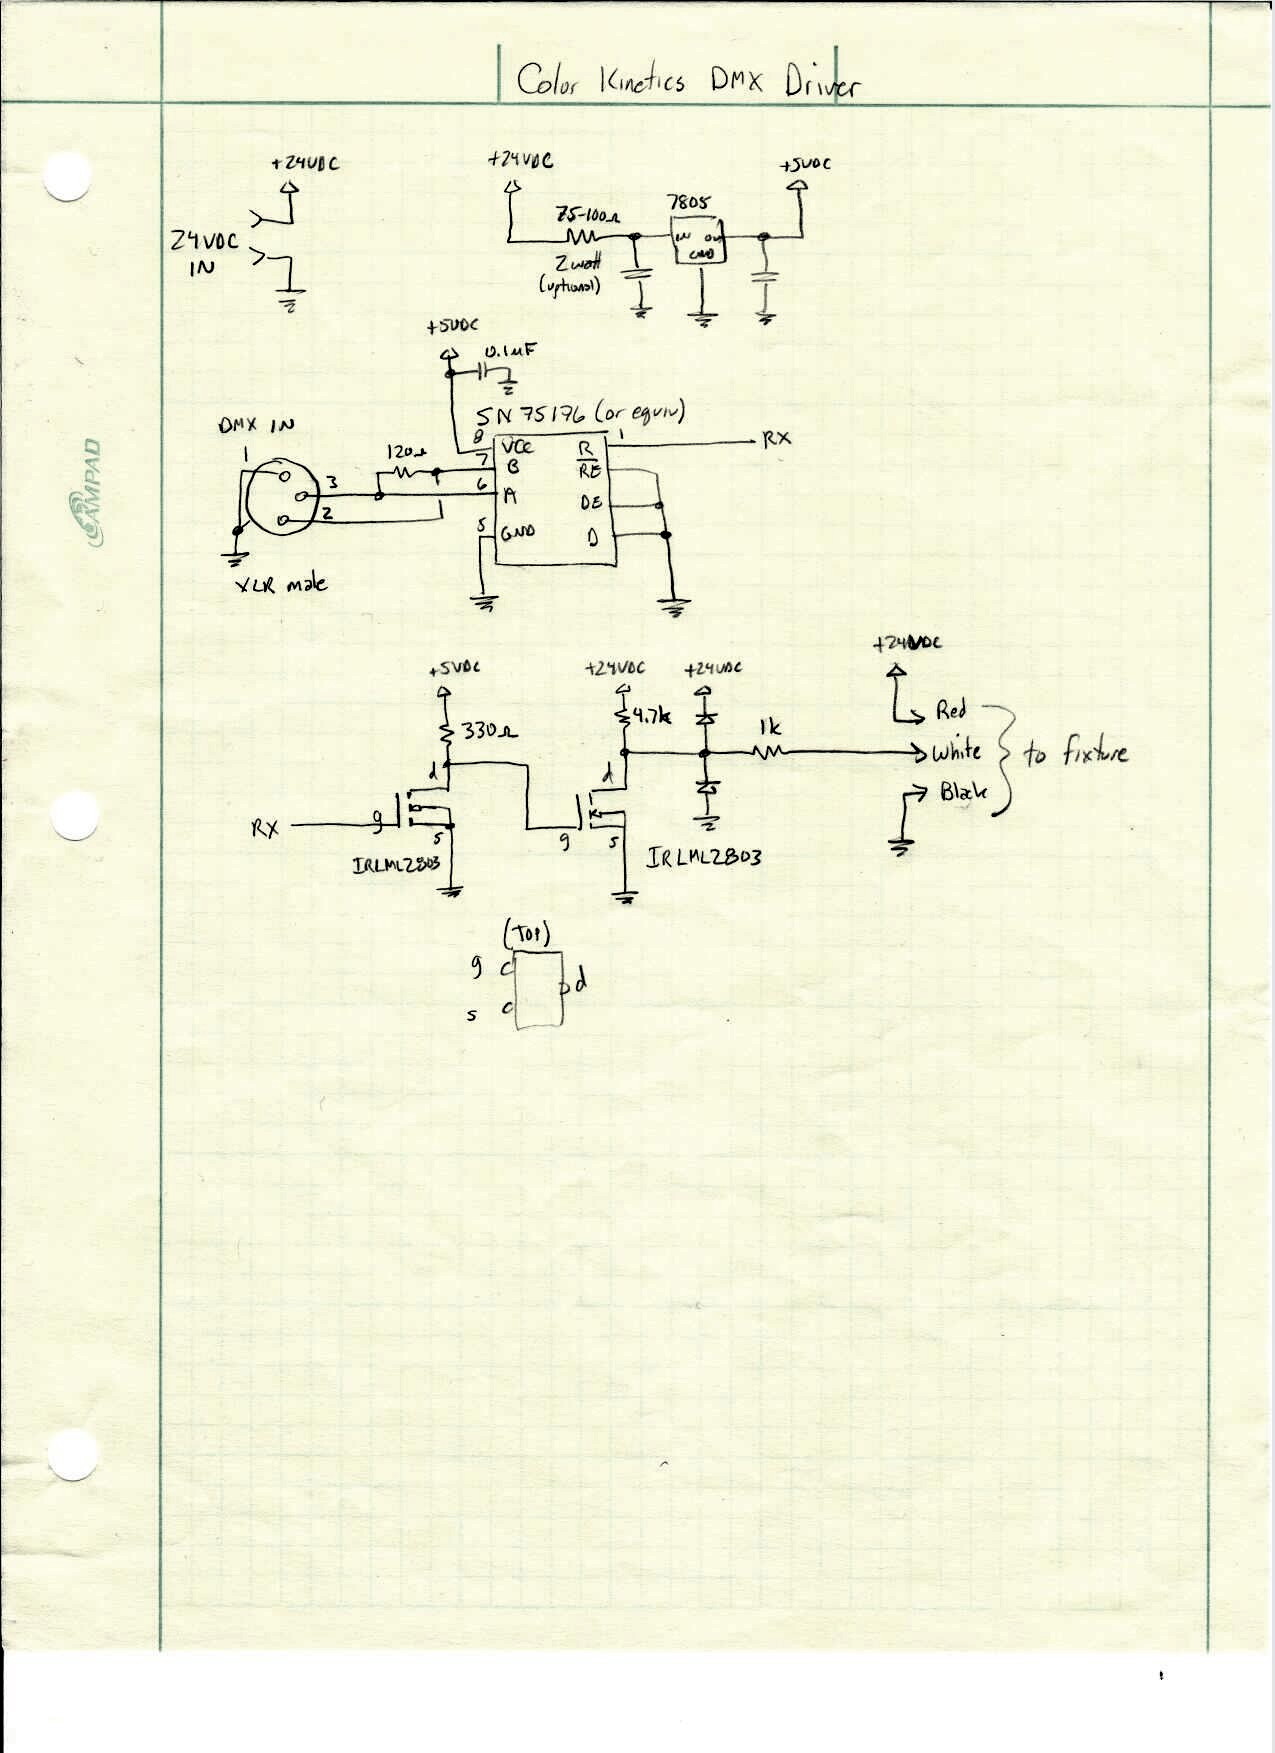 Color Kinetics DMX Driver
+24VDC
24VDC
IN
+24VDC
75-100Ω
2 watt
(optional)
7805
IN OUT
GND
+5VDC
+5VDC
0.1uF
SN75176 (or equiv)
DMX IN
1
3
2
XLR male
120Ω
8
VCC
7
B
6
A
5
GND
R
1
RX
RE
DE
D
+5VDC
330Ω
d
RX
g
s
IRLML2803
+24VDC
4.7k
d
g
s
IRLML2803
+24VDC
1k
+24VDC
Red
White
Black
to fixture
(TOP)
g
s
d
AMPAD